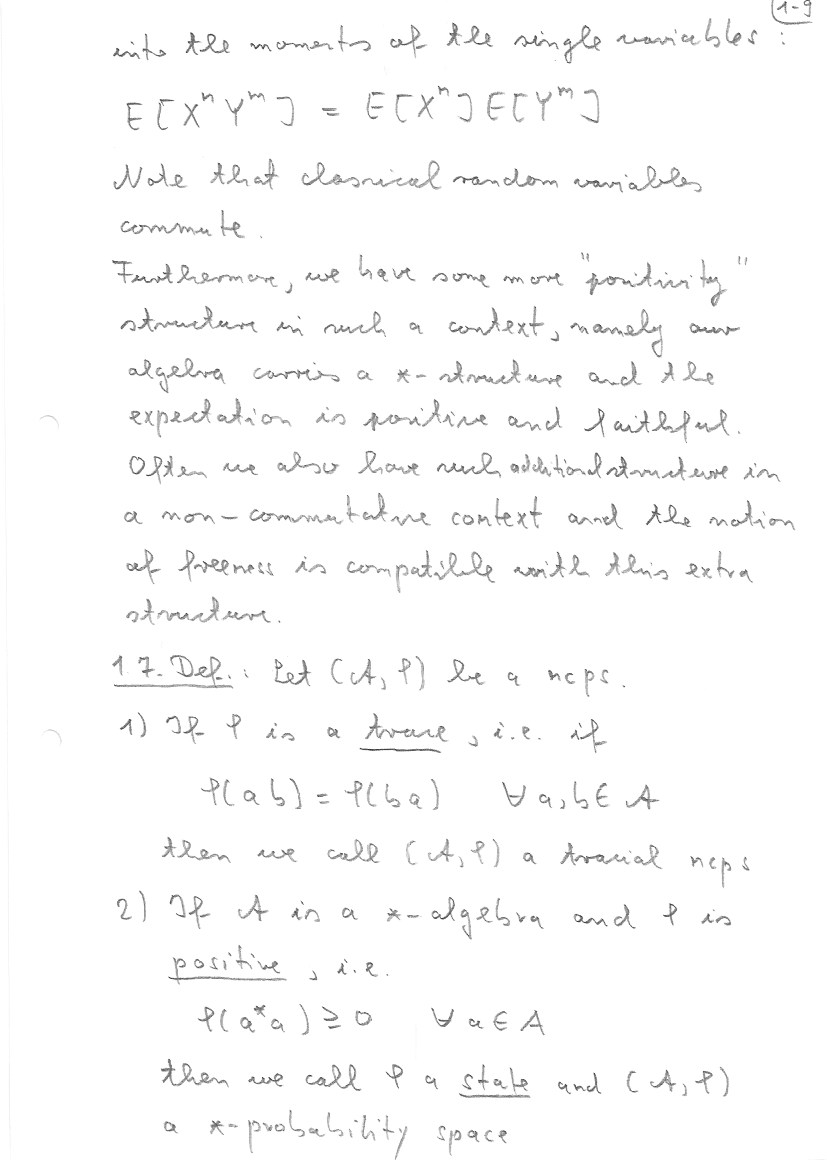 1-9
into the moments of the single variables :
E[X^n Y^m] = E[X^n] E[Y^m]
Note that classical random variables
commute.
Furthermore, we have some more "positivity"
structure in such a context, namely our
algebra carries a *-structure and the
expectation is positive and faithful.
Often we also have such additional structure in
a non-commutative context and the notion
of freeness is compatible with this extra
structure.
1.7. Def.: Let (A, φ) be a ncps.
1) If φ is a trace, i.e. if
φ(ab) = φ(ba) ∀ a,b ∈ A
then we call (A, φ) a tracial ncps
2) If A is a *-algebra and φ is
positive, i.e.
φ(a*a) ≥ 0 ∀ a ∈ A
then we call φ a state and (A, φ)
a *-probability space